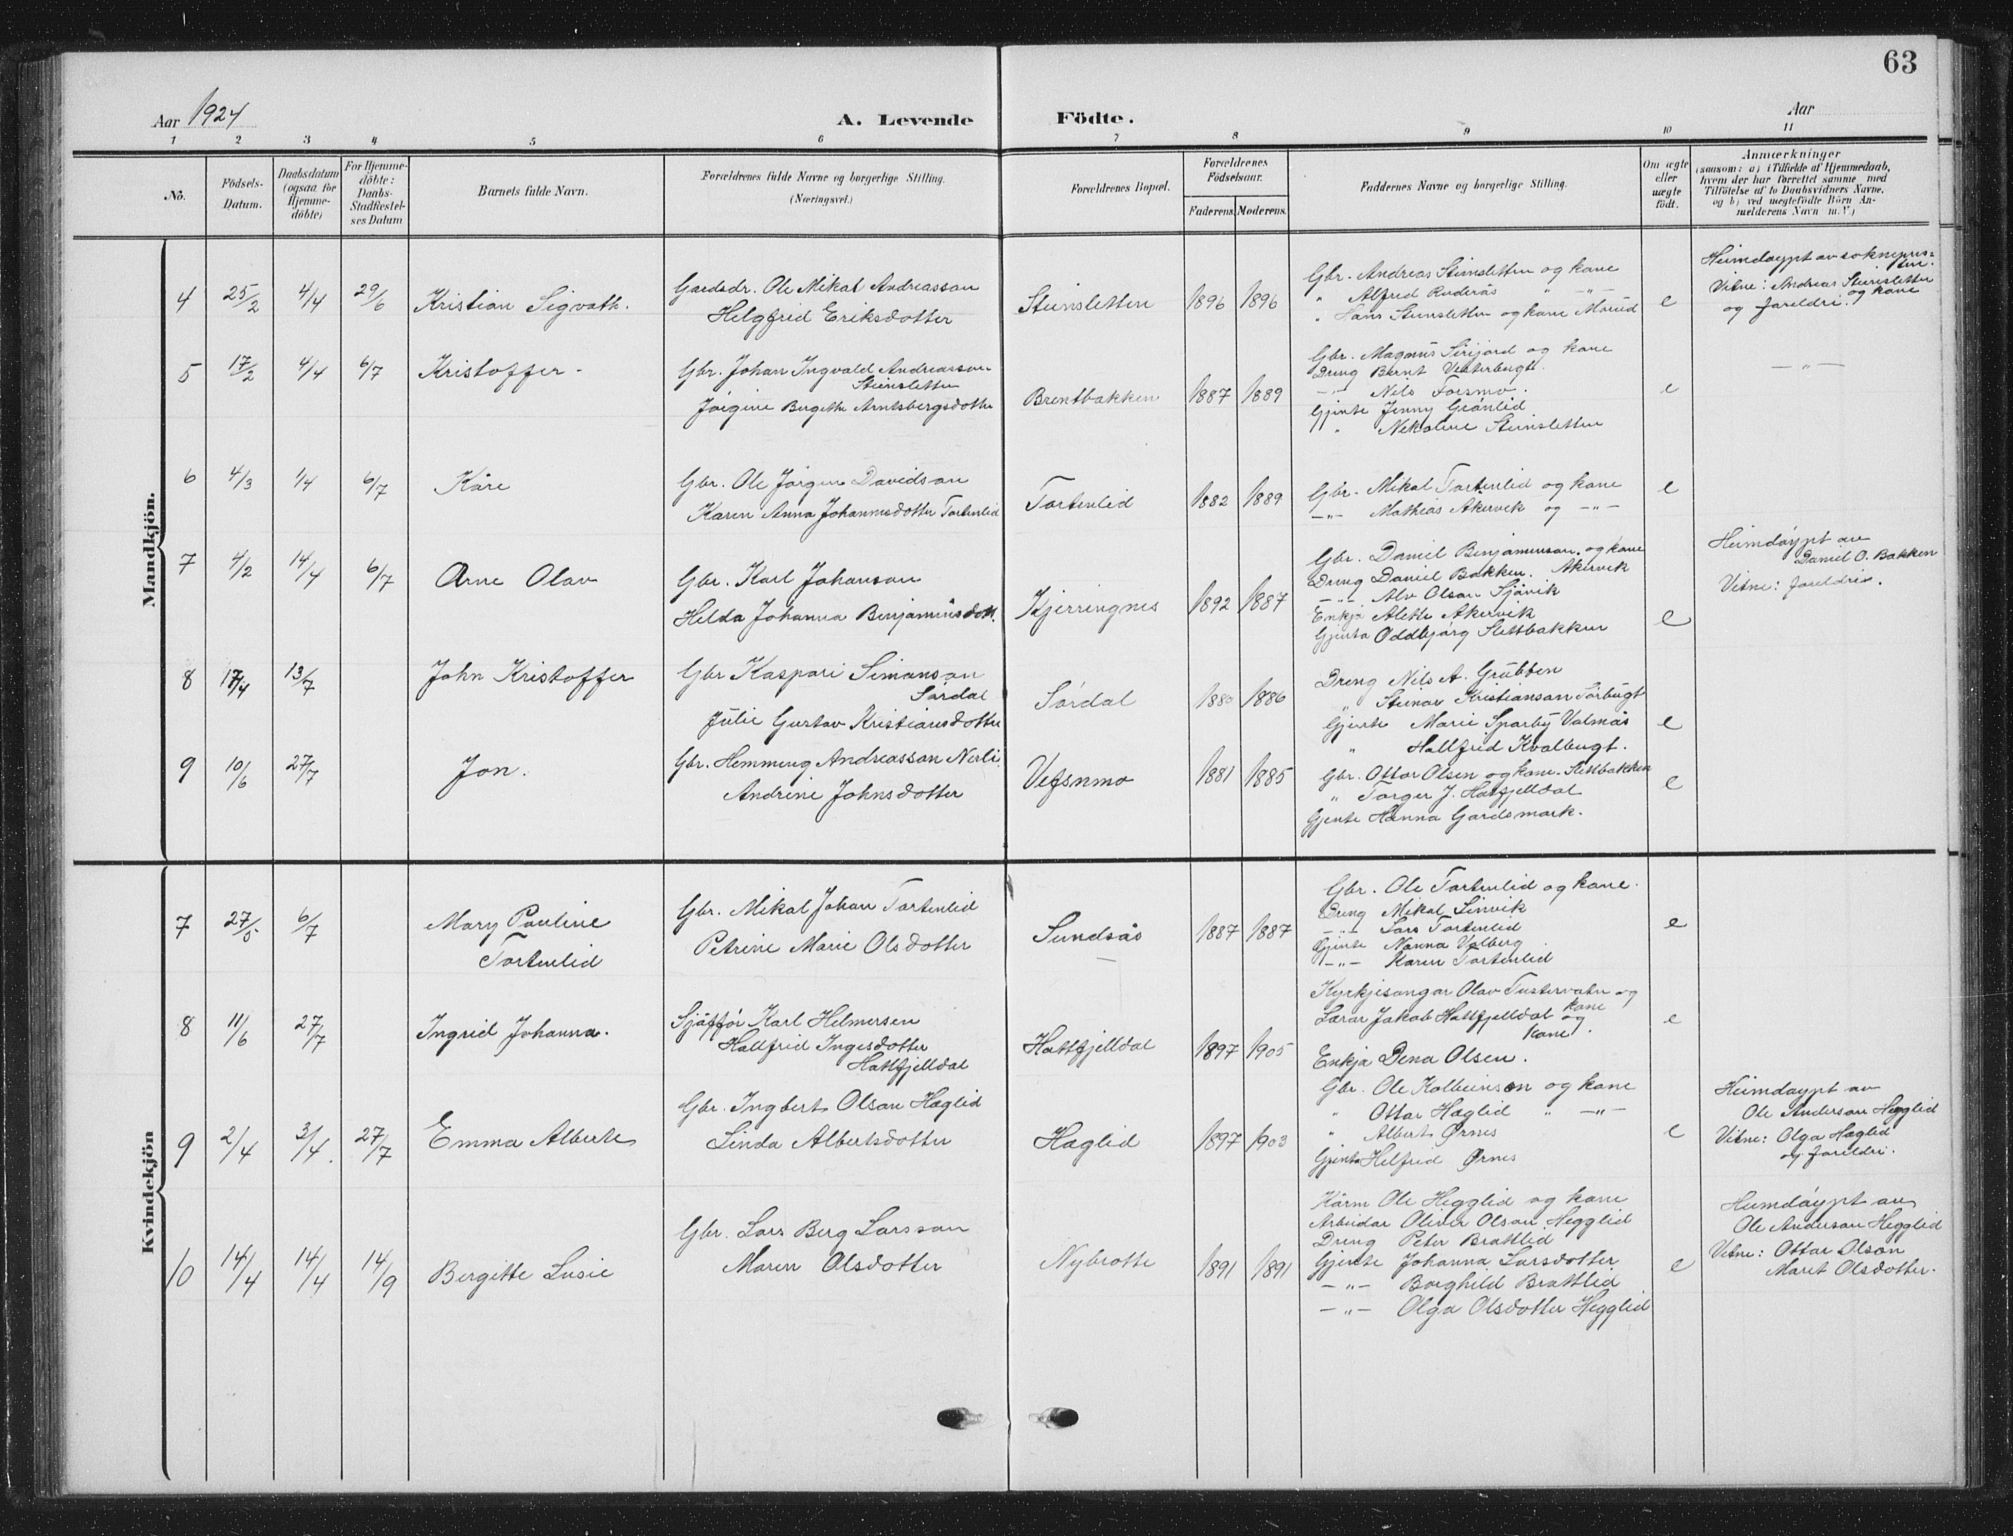 63
Aar 1924
A. Levende Födte.
Aar
1 2 3 4 5 6 7 8 9 10 11
No.
Födsels-
Datum.
Daabsdatum
(ogsaa for
Hjemme-
döbte)
For Hjemme-
döbte:
Daabs-
Stadfestel-
ses Datum
Barnets fulde Navn.
Forældrenes fulde Navne og borgerlige Stilling.
(Næringsvei.)
Forældrenes Bopæl.
Forældrenes
Födselsaar.
Faderens. Moderens.
Faddernes Navne og borgerlige Stilling.
Om ægte
eller
uægte
födt.
Anmærkninger
(saasom: a) i Tilfælde af Hjemmedaab,
hvem der har forrettet samme med
Tilföielse af to Daabsvidners Navne,
og b) ved uægtefödte Börn An-
melderens Navn m. V.)
Mandkjön.
4 25/2 4/4 29/6 Kristian Sigvath.
Gardsdr. Ole Mikal Andreasson
Helgfrid Eriksdotter
Steinsletten 1896 1896
Gbr. Andreas Steinsletten og kane
" Alfred Ruderås " -"-
" Hans Steinsletten og kane Morud
e
Heimdøypt av sokneprес-
ten.
Vitne: Andreas Steinsletten
og kane
og foreldri.
5 17/2 4/4 6/7 Kristoffer -
Gbr. Johan Ingvald Andreasson
Steinsletten
Jørgine Bergitte Arntsbergsdotter
Brentbakken 1887 1889
Gbr. Magnus Sirijord og kane
Dreng Bernt Vesterbugt.
-"- Nils Forsmo.
Gjente Jenny Grönlid
" Nekoline Steinsletten
e
-"-
6 4/3 1/4 6/7 Kåre
Gbr. Ole Jörgen Davidson
Karen Anna Johannesdotter Tortenlid
Tortenlid 1882 1889
Gbr. Mikal Tortenlid og kane
-"- Mathias Åkervik og -"-
e
7 4/2 14/4 6/7 Arne Olav
Gbr. Karl Johanson
Helda Johanna Benjaminsdott.
Kjerringnes 1892 1887
Gbr. Daniel Benjaminson og kane
Dreng Daniel Bakken. Åkervik
-"- Alv Olson Sjåvik
Enkja Alette Åkervik
Gjenta Oddbjørg Slettbakken
e
Heimdøypt av
Daniel O. Bakken
Vitne: foreldri.
8 17/4 13/7 John Kristoffer
Gbr Kaspari Simonson
Sördal
Julie Gustav Kristiansdotter
Sördal 1880 1886
Dreng Nils A. Grubben
" Steinar Kristianson Sörbugt
Gjente Marie Sparby Valmås
" Hallfrid Kvalbugt.
e
9 10/6 27/7 Jon.
Gbr. Hemming Andreasson Nerli
Andrine Johnsdotter
Vefsnmo 1881 1885
Gbr. Ottar Olsen og kane. Slettbakken
" Torger J. Hatfjelldal
Gjente Hanna Gardsmark.
e
Kvindekjön
7 27/5 6/7 Mary Pauline
Tortenlid
Gbr. Mikal Johan Tortenlid
Petrine Marie Olsdotter
Sundsås 1887 1887
Gbr. Ole Tortenlid og kane.
Dreng Mikal Sinvik
-"- Lars Tortenlid
Gjente Nanna Valberg
-"- Karen Tortenlid
e
8 11/6 27/7 Ingrid Johanna.
Sjåffør Karl Helmersen
Hallfrid Ingesdotter
Hattfjelldal
Hattfjelldal 1897 1905
Kyrkjesongar Olav Tustervatn og
kane
Lærar Jakob Hattfjelldal og
kane.
Enkja Dena Olsen.
e
9 2/4 3/4. 27/7 Emma Alberte
Gbr. Ingbert Olson Hæglid
Linda Albertsdotter
Hæglid 1897 1903
Gbr. Ole Kolbeinson og kane
" Ottar Hæglid " -"-
" Albert Ørnes
Gjenta Helfrid Ørnes
e
Heimdøypt av
Ole Anderson Hegglid
Vitne: Olga Hæglid
og foreldri.
10 14/4 14/4 14/9 Bergitte Lusie
Gbr. Lars Berg Larsson
Maren Olsdotter
Nybrotte 1891 1891
Kårm Ole Hegglid og kane
Arbeidar Oliver Olson Hegglid
Dreng Peter Brattlid
Gjente Johanna Larsdotter
-"- Borghild Brattlid
-"- Olga Olsdotter Hegglid
e
Heimdøypt av
Ole Anderson Hegglid
Vitne: Ottar Olson
Maret Olsdotter.